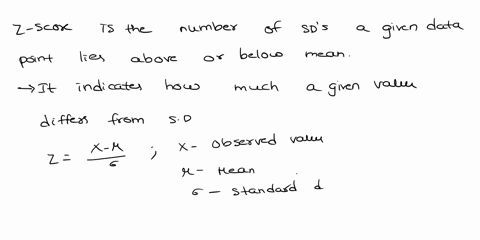 Z-score is the number of SD's a given data
point lies above or below mean.
→ It indicates how much a given value
differs from S.D
Z = (X-μ)/σ ; X- observed value
μ- Mean
σ - standard d